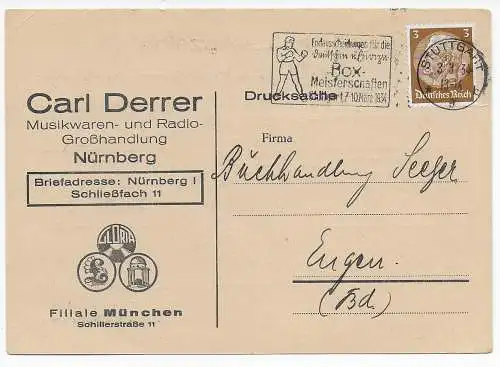 Endausscheidungen für die
Box-
Meisterschaften
7.-10. März 1934
3 3
Deutsches Reich
STUTTGART
Carl Derrer
Musikwaren- und Radio-
Großhandlung
Nürnberg
Briefadresse: Nürnberg I
Schließfach 11
GLORIA
Filiale München
Schillerstraße 11
Drucksache
Firma
Buchhandlung Seeger
Engen.
(Bd.)